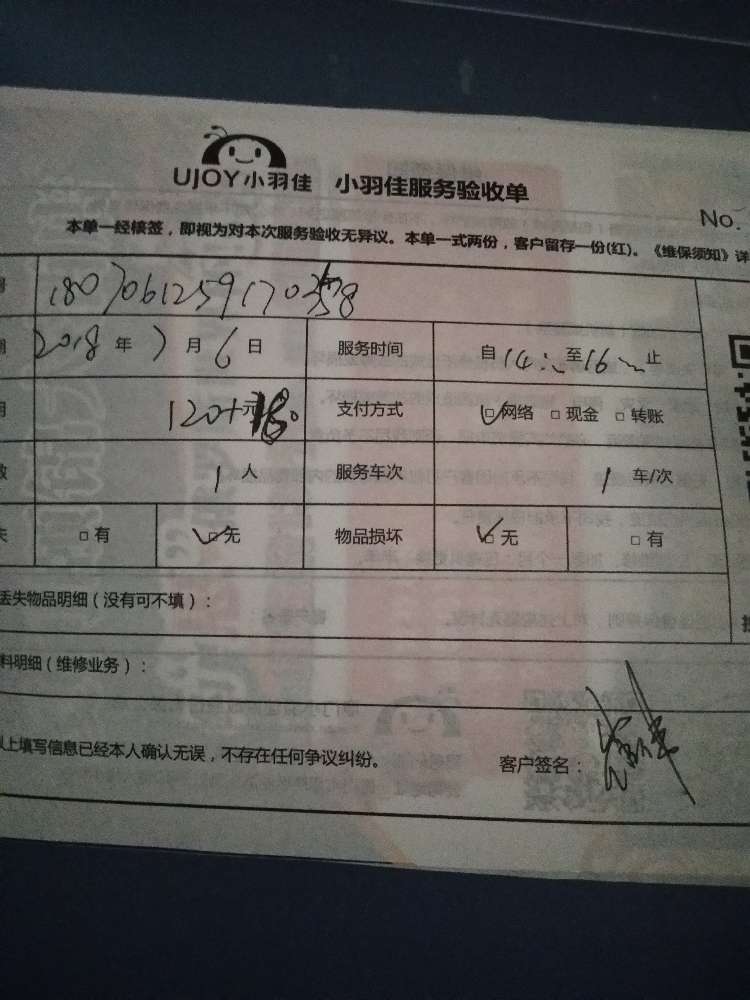 UJOY小羽佳 小羽佳服务验收单
No.
本单一经核签，即视为对本次服务验收无异议。本单一式两份，客户留存一份(红)。《维保须知》详
2018年7月6日 服务时间 自14:00至16:00止
120+元 支付方式 □网络 □现金 □转账
1人 服务车次 1车/次
□有 □无 物品损坏 □无 □有
丢失物品明细（没有可不填）：
料明细（维修业务）：
以上填写信息已经本人确认无误，不存在任何争议纠纷。 客户签名：